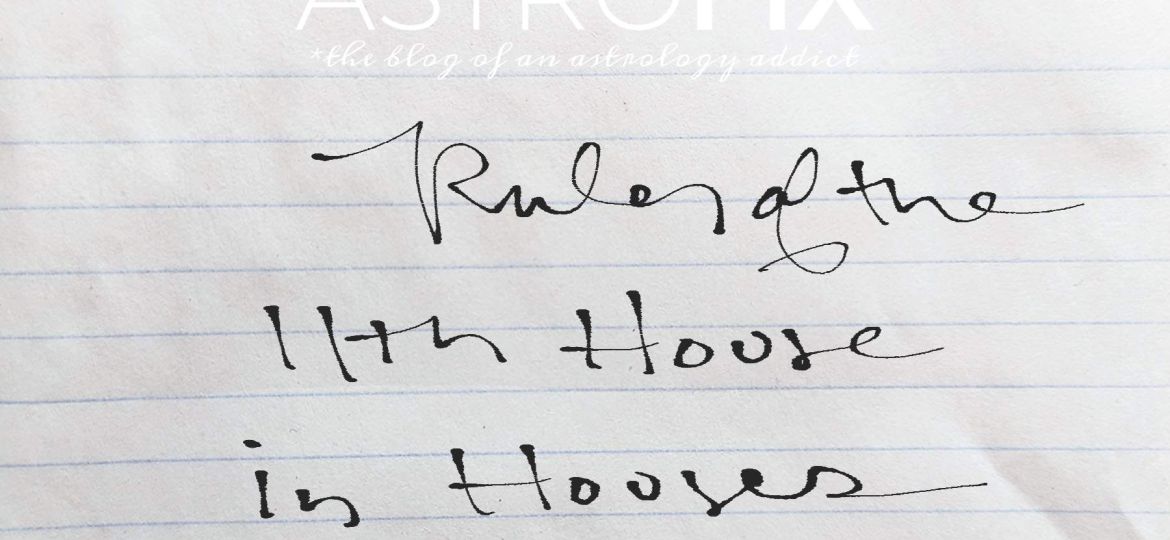 ASTROFIX
*the blog of an astrology addict
Ruler of the
11th House
in Houses